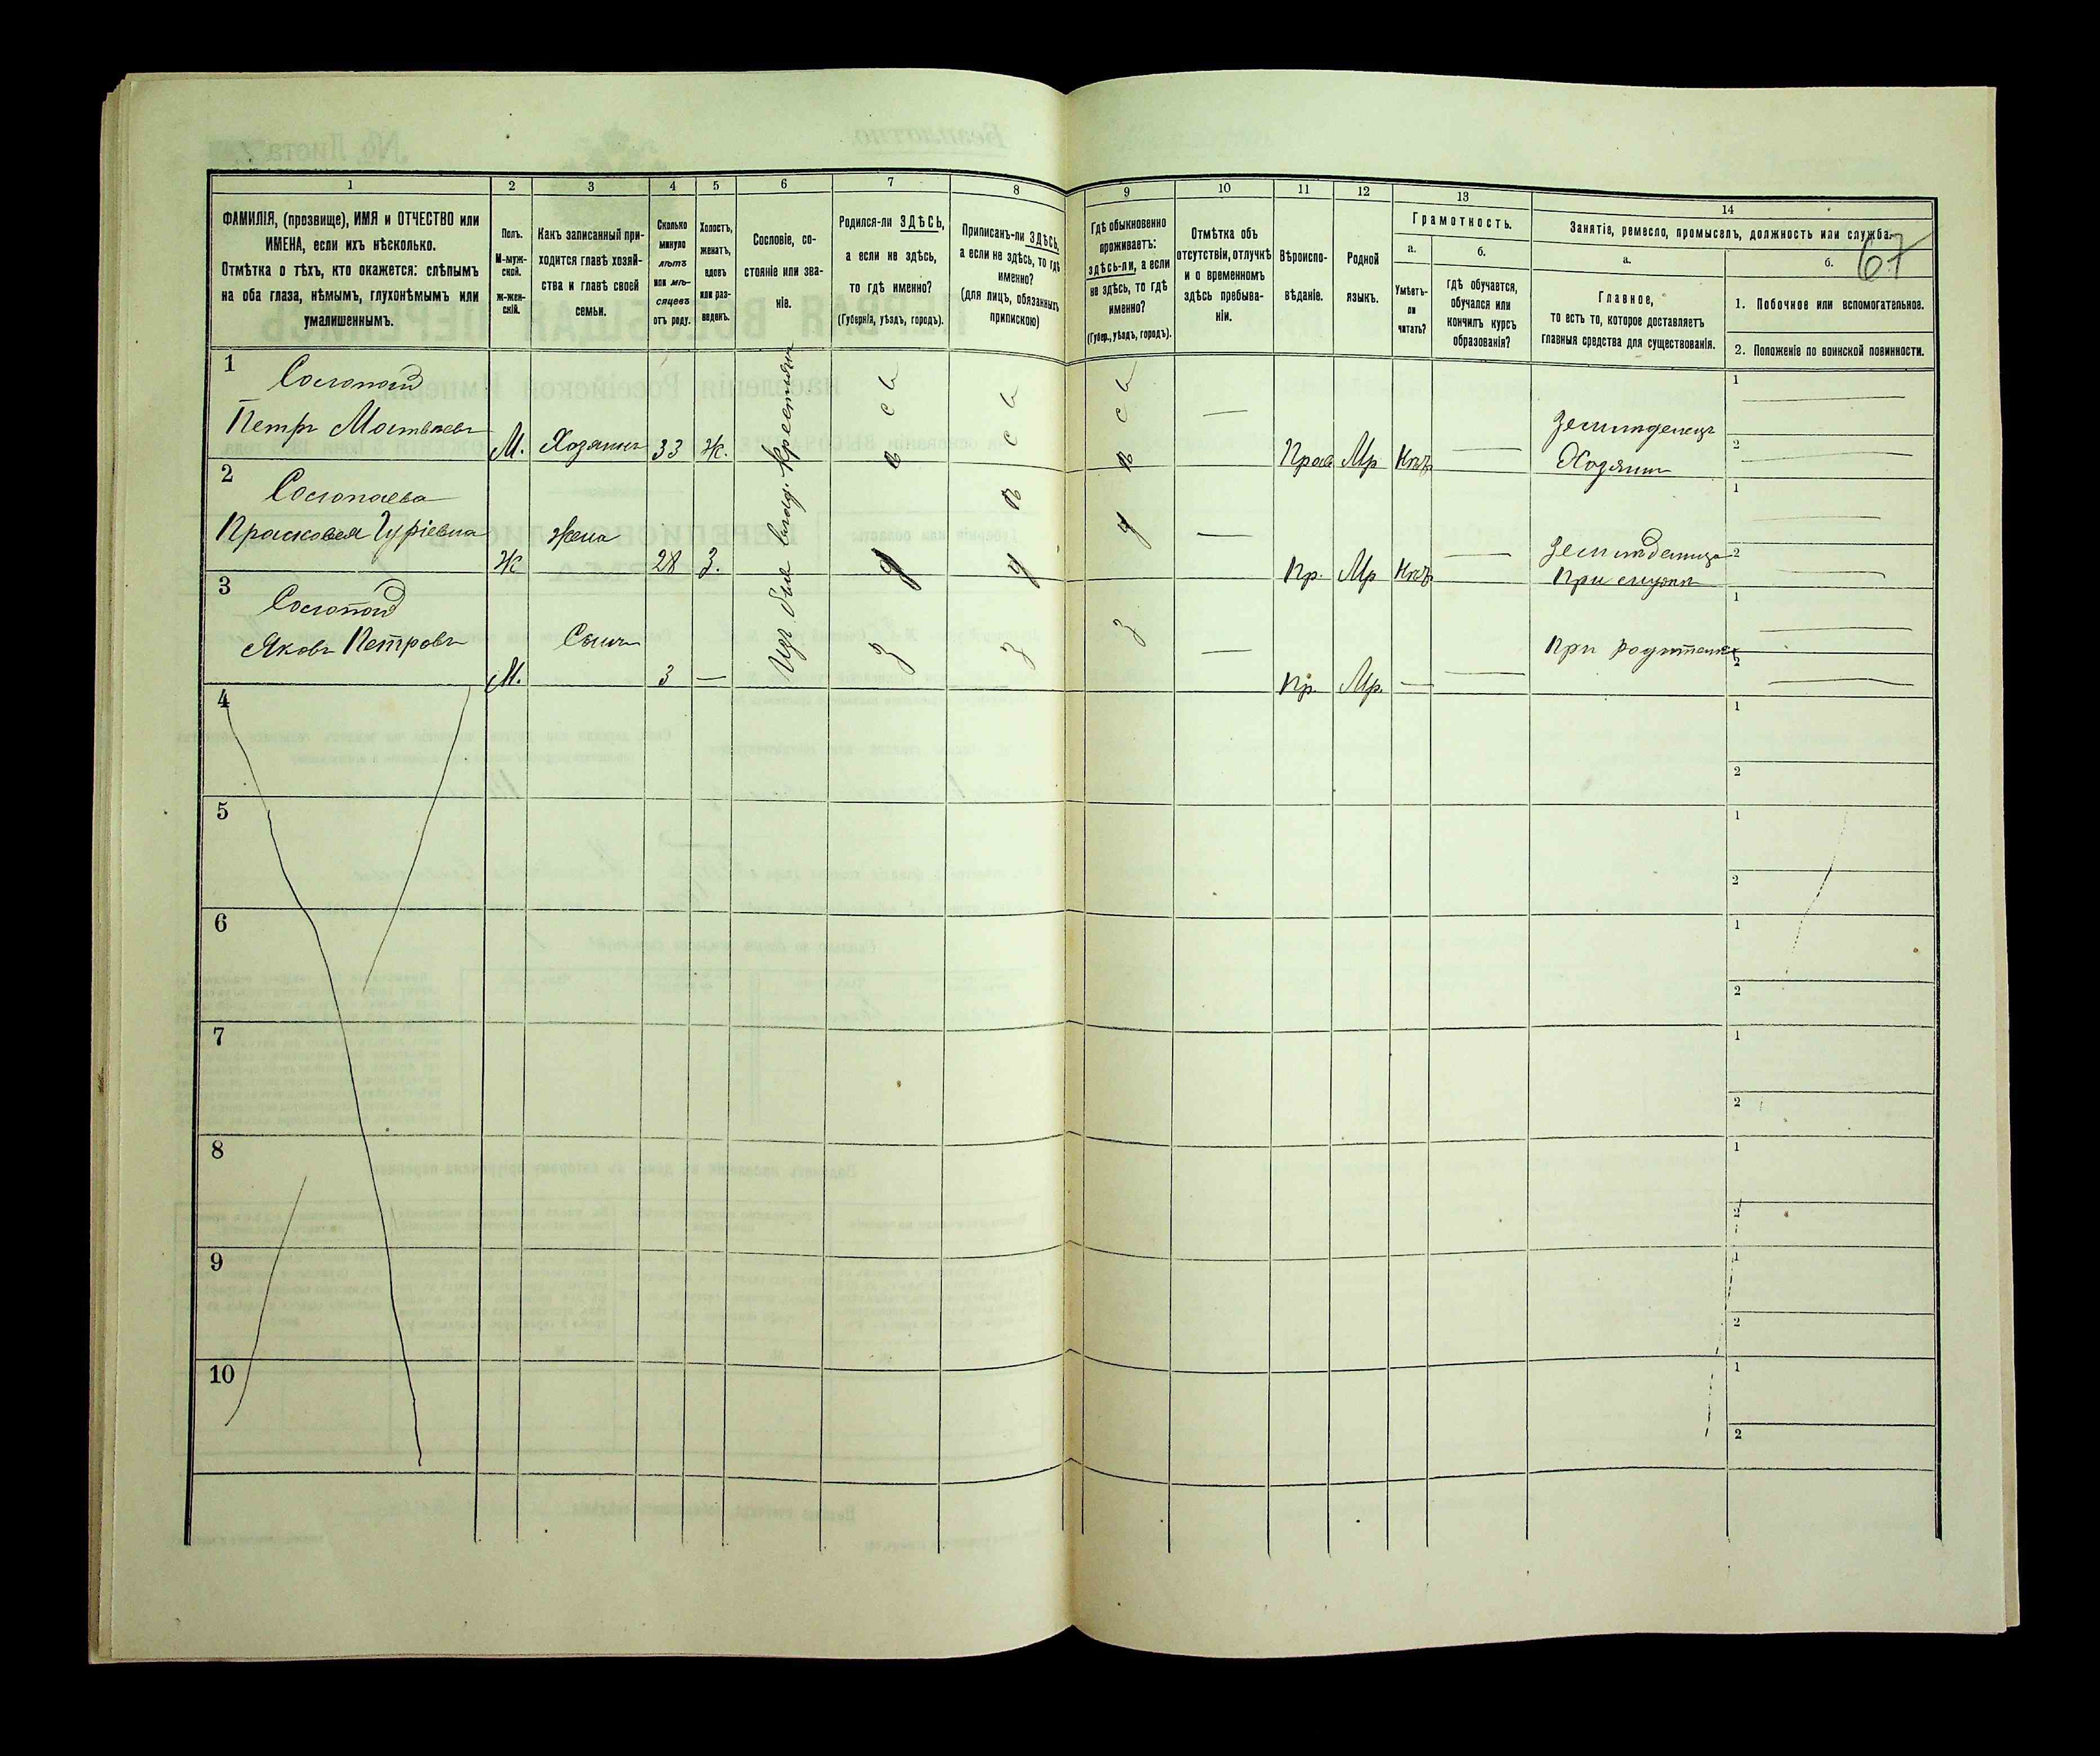 67
1
2
3
4
5
6
7
8
9
10
11
12
13
14
ФАМИЛІЯ, (прозвище), ИМЯ и ОТЧЕСТВО или
ИМЕНА, если ихъ нѣсколько.
Отмѣтка о тѣхъ, кто окажется: слѣпымъ
на оба глаза, нѣмымъ, глухонѣмымъ или
умалишеннымъ.
Полъ.
М-муж-
ской.
ж-жен-
скій.
Какъ записанный при-
ходится главѣ хозяй-
ства и главѣ своей
семьи.
Сколько
минуло
лѣтъ
или мѣ-
сяцевъ
отъ роду.
Холостъ,
женатъ,
вдовъ
или раз-
веденъ.
Сословіе, со-
стояніе или зва-
ніе.
Родился-ли ЗДѢСЬ,
а если не здѣсь,
то гдѣ именно?
(Губернія, уѣздъ, городъ).
Приписанъ-ли ЗДѢСЬ,
а если не здѣсь, то гдѣ
именно?
(для лицъ, обязанныхъ
припискою)
Гдѣ обыкновенно
проживаетъ:
здѣсь-ли, а если
не здѣсь, то гдѣ
именно?
(Губер., уѣздъ, городъ).
Отмѣтка объ
отсутствіи, отлучкѣ
и о временномъ
здѣсь пребыва-
ніи.
Вѣроиспо-
вѣданіе.
Родной
языкъ.
Грамотность.
а.
Умѣетъ-
ли
читать?
б.
гдѣ обучается,
обучался или
кончилъ курсъ
образованія?
Занятіе, ремесло, промыселъ, должность или служба.
а.
Главное,
то есть то, которое доставляетъ
главныя средства для существованія.
б.
1. Побочное или вспомогательное.
2. Положеніе по воинской повинности.
1
Петръ
М. Хозяинъ 33 Ж. — Прав Мр —
Хозяинъ
1
2
Изъ быв. влад. крестьянъ
здѣсь
здѣсь
здѣсь
2
Прасковья Гуріевна
Ж Жена 28 З. — Пр. Мр —
1
2
3
Яковъ Петровъ
М. Сынъ 3 — — Пр. Мр. — —
При
1
2
4
1
2
5
1
2
6
1
2
7
1
2
8
1
2
9
1
2
10
1
2